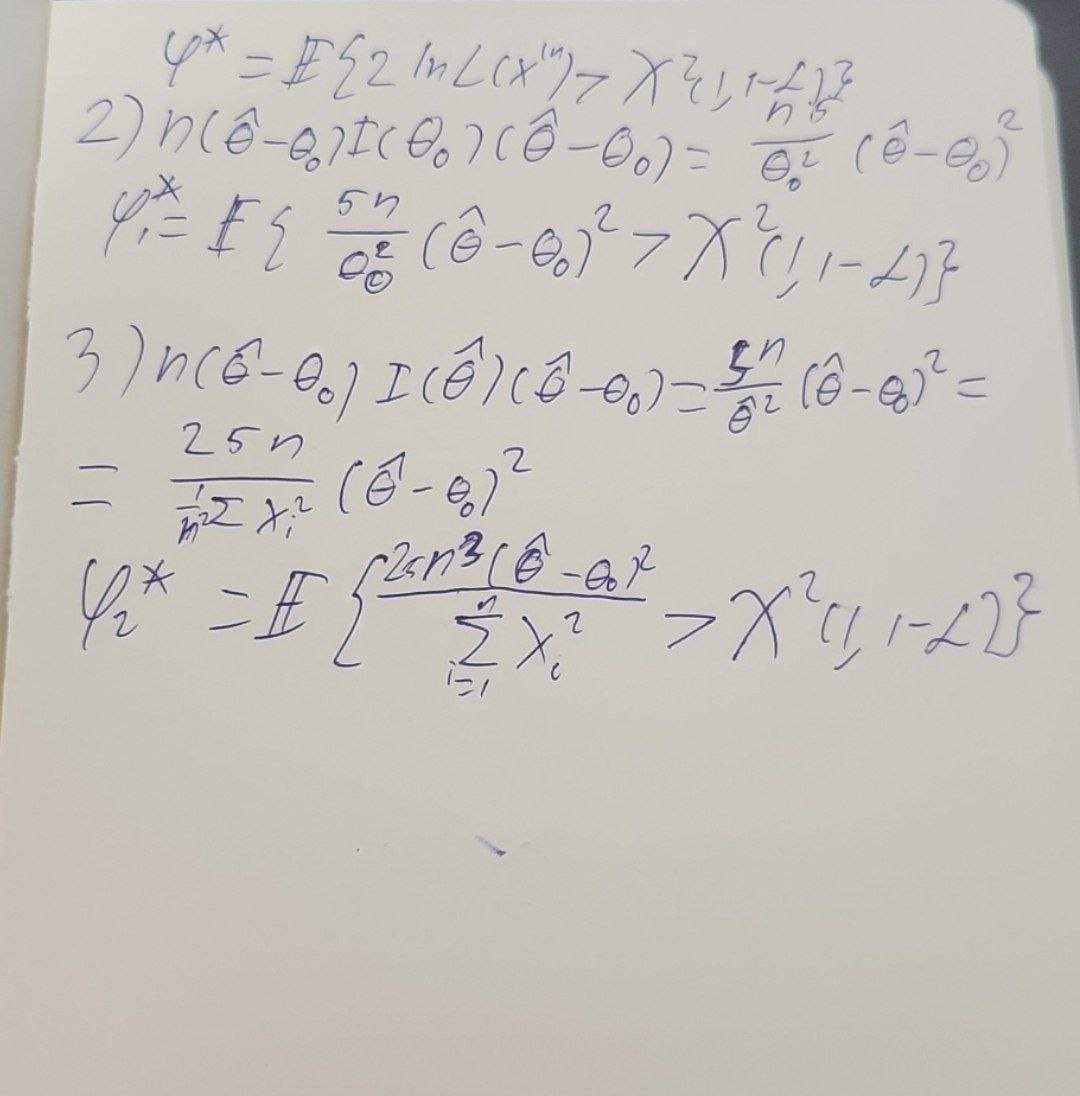 φ* = I{2 ln L(x⁽ⁿ⁾) > χ²(1, 1-α)}
2) n(θ̂-θ₀)I(θ₀)(θ̂-θ₀) = n5/θ₀² (θ̂-θ₀)²
φ₁* = I{ 5n/θ₀² (θ̂-θ₀)² > χ²(1, 1-α)}
3) n(θ̂-θ₀) I(θ̂)(θ̂-θ₀) = 5n/θ̂² (θ̂-θ₀)² =
= 25n/(1/n² Σ xᵢ²) (θ̂-θ₀)²
φ₂* = I{ 25n³(θ̂-θ₀)²/∑ⁿᵢ₌₁ xᵢ² > χ²(1, 1-α)}